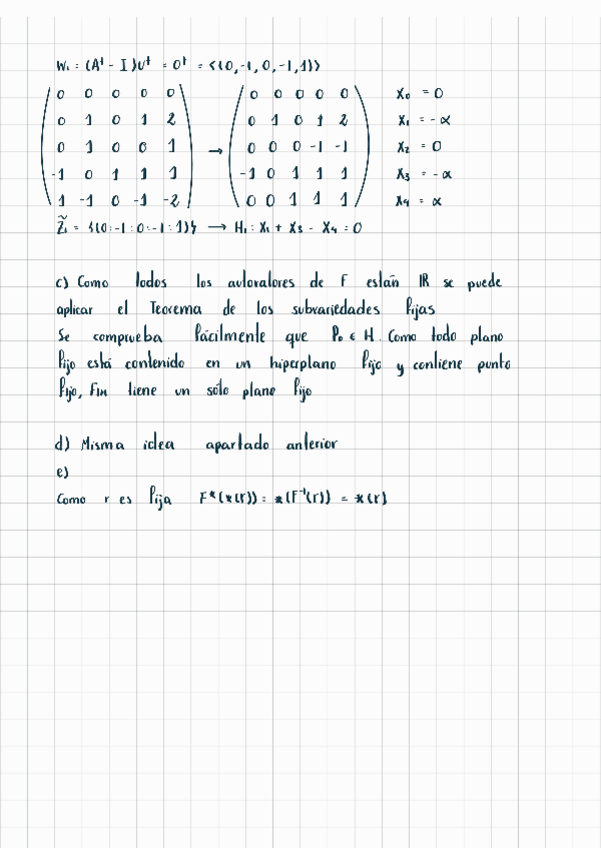 W₁ : (Aᵗ - I)Uᵗ = 0ᵗ = <(0,-1,0,-1,1)>
0 0 0 0 0    0 0 0 0 0    X₀ = 0
0 1 0 1 2    0 1 0 1 2    X₁ = -α
0 1 0 0 1 → 0 0 0 -1 -1    X₂ = 0
-1 0 1 1 1    -1 0 1 1 1    X₃ = -α
1 -1 0 -1 -2    0 0 1 1 1    X₄ = α
Z̃₁ = {(0:-1:0:-1:1)} → H₁ : X₁ + X₃ - X₄ = 0
c) Como todos los autovalores de F están IR se puede
aplicar el Teorema de los subvariedades fijas
Se comprueba fácilmente que P₀ ∈ H. Como todo plano
fijo está contenido en un hiperplano fijo y contiene punto
fijo, F|H tiene un sólo plano fijo
d) Misma idea apartado anterior
e)
Como r es fija F*(*(r)) = *(F⁻¹(r)) = *(r)